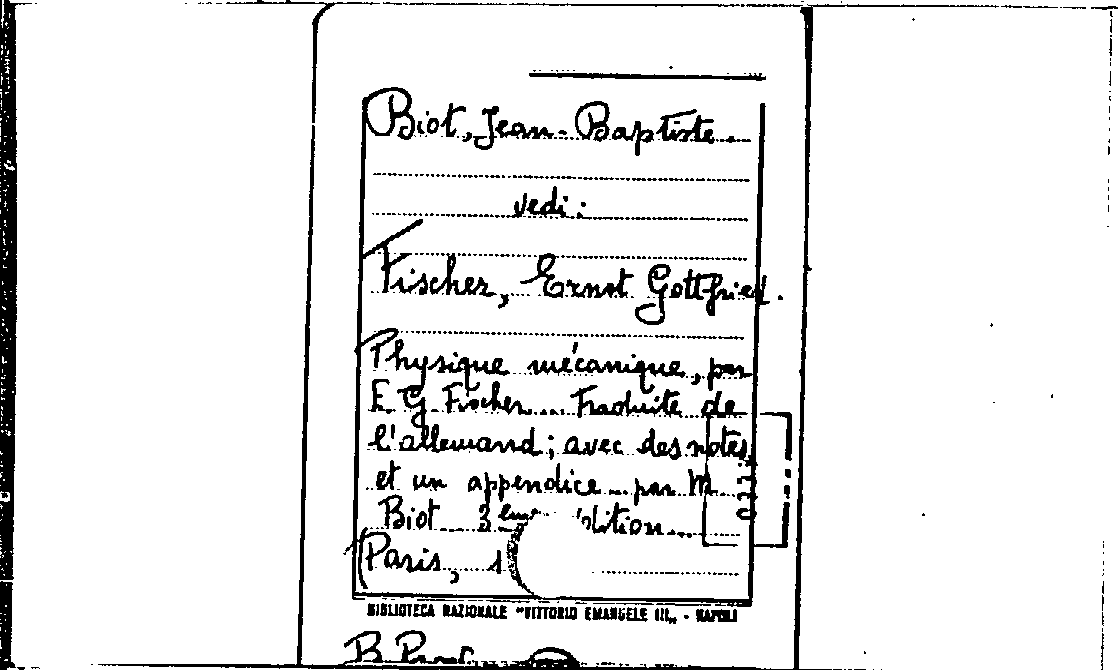 Biot, Jean-Baptiste.
vedi:
Fischer, Ernst Gottfried.
Physique mécanique, par
E. G. Fischer... Traduite de
l'allemand; avec des notes,
et un appendice... par M.
Biot... 3ème édition...
Paris, 1
BIBLIOTECA NAZIONALE "VITTORIO EMANUELE III„ - NAPOLI
B. Prov.